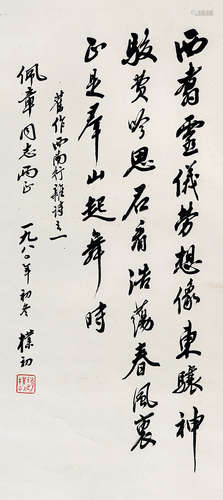 西舊靈儀勞想像東驤神
駿費吟思石看浩蕩春風裏
正是群山起舞時
舊作西南行雜詩之一
佩章同志兩正
一九八〇年初冬 樸初